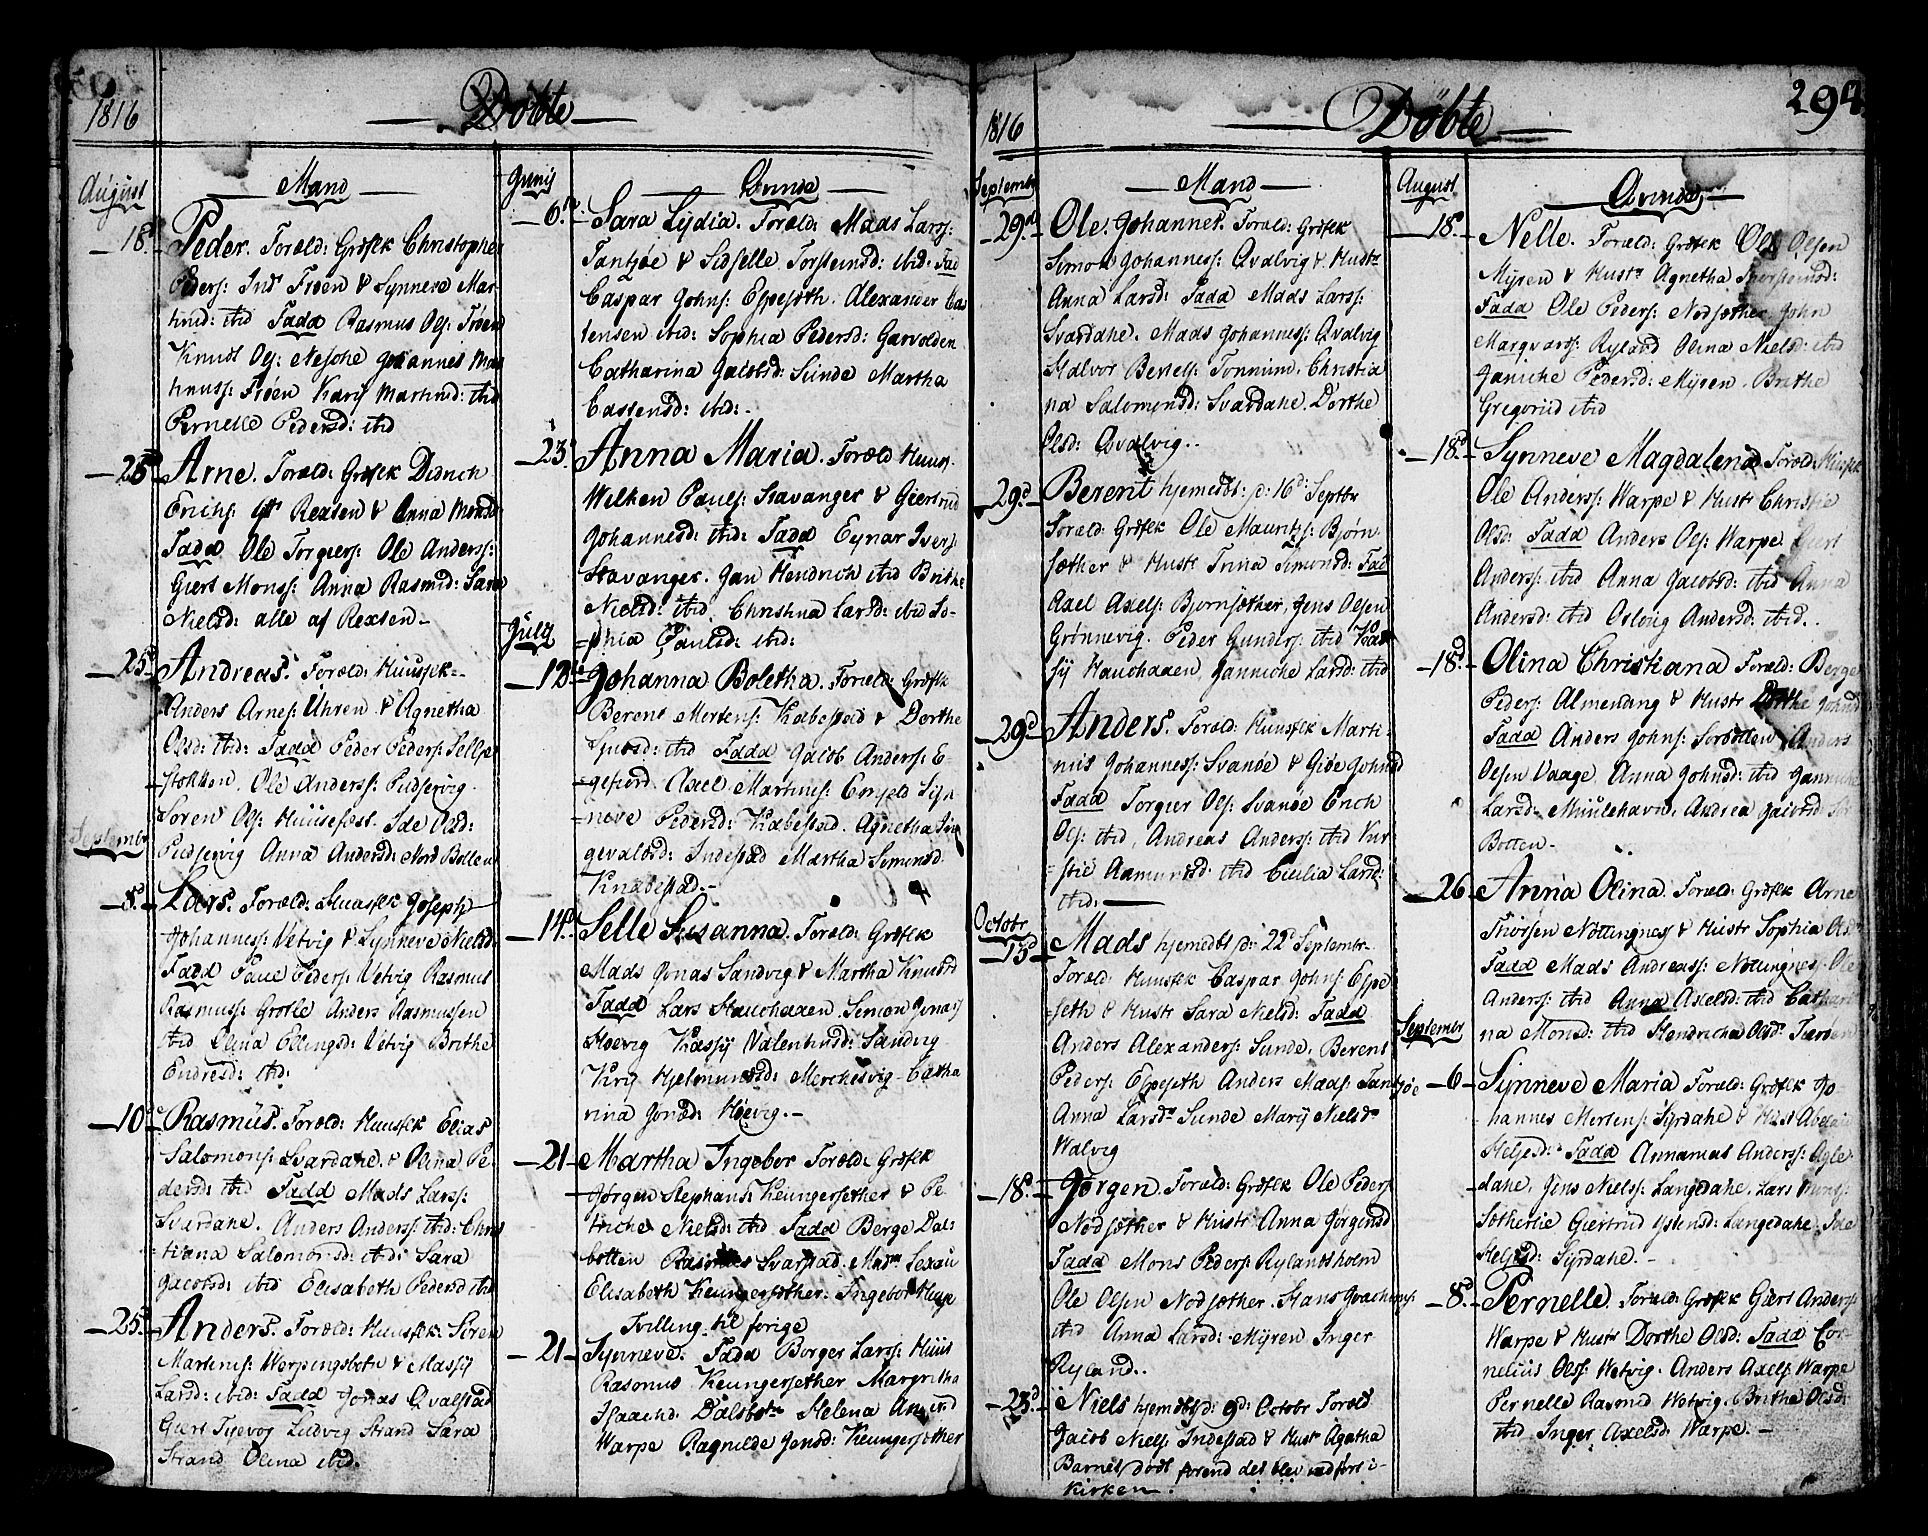 1816
Döbte
August
Mand
18d
Peder. Foræld: Grøfck Christopher
Peders: Ind Frøen & Synneve Mar-
ibid Fadd Rasmus Ols: Frøen
Knudt Ols: Nesøhe Johannes Mag
Frøen Kary ibid
Pernelle Pedersd: ibid
25d
Arne. Foræld: Grøfck Didrich
Erichs: Rexsen & Anna Monsd
Fadd Ole Torgiers: Ole Anderss:
Giert Monss: Anna Rasmusd: Sara
Nielsd: alle af Rexsen
25d
Andreas. Foræld: Huusfck
Anders Arnes: Uhren & Agnetha
Olsd: ibid: Fadd Peder Peders: Selljer
Stokken. Ole Anderss: Pidsevig
Søren Ols: Huusefest. Ide Olsd:
Pidsevig Anna Andersd: Nord Botten
Septembr
8d
Lars. Foræld. Huusfck Joseph
Johanness: Vetvig & Synneve Nielsd:
Fadd Paul Peders: Vetvig Rasmus
Rasmuss: Grotle Anders Rasmussen
ibid Elina Ellingsd: Vetvig Brithe
Endresd: ibid:
10d
Rasmus. Foræld: Huusfck Elias
Salomons: Svardahe & Olina Pe-
dersd: ibid Fadd Mads Larss:
Svardahe. Anders Anderss: ibid: Chris
tiana Salomonsd: ibid: Sara
Jacobsd: ibid Elisabeth Pedersd ibid
25d
Anders. Foræld: Huusfck: Søren
Martens: Werpingsbotn & Massy
Larsd: ibid: Fadd Jonas Qvalstad
Giert Ludvig Strand Sara
Strand Olina ibid.
Junij
Qvinde
6te
Sara Lydia. Foræld: Mads Larss:
Tansøe & Sidselle Torsteinsd: ibid: Fad
Caspar Johns: Espeseth. Alexander Cas
tensen ibid: Sophia Pedersd: Garvolden
Catharina Jacobsd: Sunde Martha
Castensd: ibid:
23d
Anna Maria. Foræld Huus.
Wilken Pauls: Stavanger & Giertrud
Johannesd: ibid: Fadd Eynar Ivers
Stavanger. Jan Hendrich ibid Brithe
Nielsd: ibid. Christina Larsd: ibid So-
phia Paulsd: ibid:
July
12d
Johanna Boletha. Foræld: Grøfck
Berent Mertens: Knabestad & Dorthe
Siursd: ibid Fadd Jacob Anderss: E-
gefiord. Axel Martinus: Sÿn
neve Pedersd: Knabestad. Agnetha Jn
gevaldsd: Indestad Martha Simonsd
Knabestad.
14d
Selle Susanna. Foræld: Grøfck
Mads Jonas Sandvig & Martha Knudsd
Fadd Lars Hauchaaen. Simon Jonas
Hoevig Kassy Valentinsd: Sandvig
Kry Hjelmundsd: Merchesvig. Catha
rina Jonsd: Høevig.
21
Martha Ingebor Foræld: Grøfck
Jørgen Stephans: Keungersether & Pe
triche Nielsd: ibid Fadd Berge Dals
botten Rasmus Svarstad. Madm Lexau
Elisabeth Keungersæther. Ingebor Huse
Tvilling til forige
21
Synneve. Fadd Borger Larss: Huus
Rasmus Keungersether Margretha
Isaachsd. Dalsbotn Helena Andersd
Warpe Ragnilde Jonsd: Keungersether
1816
Döbte
294
Septembr
Mand
29d
Ole Johannes. Foræld: Grøfck
Simon Johanness: Qvalvig & Hustr
Anna Larsd: Fadd Mads Larss:
Svardahe. Mads Johanness: Qvalvig
Halvor Bentss: Tonnum. Christia
na Salomonsd: Svardahe. Dorthe
Olsd: Qvalvig..
29d
Berent hjemdøbt: d: 16d Septbr
Foræld: Grøfck Ole Mauritss: Bjørn
sæther & Hustr Trina Simonsd: Fad
Axel Axels: Bjørnsæther, Jens Olsen
Grønnevig. Peder Gunders: ibid Kas
sy Hauchaaen, Jannicke Larsd: ibid
29d
Anders. Foræld: Huusfck Marti-
nus Johanness: Svanøe & Gide Johnsd
Fadd Torgier Ols: Svanøe Erich
Ols: ibid, Andreas Anderss: ibid Kir-
stie Aamundsd: ibid Cicilia Larsd:
ibid:
Octobr
13d
Mads hjemdøbt d: 22d Septembr
Foræld: Huusfck Caspar Johns: Espe
seth & Hustr Sara Nielsd: Fadd
Anders Alexanders: Sunde. Berent
Peders: Espeseth Anders Mads: Tansøe
Anna Larsdr Sunde Mary Nielsdr
Walvig
18d
Jørgen. Foræld: Grøfck Ole Peders
Nodsæther & Hustr Anna Jørgensd
Fadd Mons Peders: Rylandsholm
Ole Olsen Nodsæther. Hans Joachims:
ibid Anna Larsd: Myren Inger
Ryland..
23d
Niels hjemdøbt d: 9d: Octobr Foræld
Jacob Niels: Indestad & Hustr Agatha
Barnet dødt førend det blev indført i
kirken.
August
Qvinde
18d
Nelle. Foræld: Grøfck Ole Olsen
Myren & Hustr Agnetha Thorsteinsd:
Fadd Ole Peders: Nodsæther John
Marqvars: Ryland Olina Nielsd: ibid
Janiche Pedersd: Myren. Brithe
Gregorii d ibid
18d
Synneve Magdalena. Foræld: Huusfck
Ole Anderss: Warpe & Hustr Christie
Olsd: Fadd Anders Ols: Warpe Giert
Anderss: ibid Anna Jacobsd: ibid Anna
Andersd: ibid Oslöug Andersd: ibid..
18d
Olina Christiana Foræld: Berge
Peders: Almenning & Hustr Dorthe Johnsd
Fadd Anders Johns: Sorbotten Anders
Olsen Vaage Anna Johnsd: ibid Jannicke
Larsd: Muulehavn. Andrea Jacobsd Sør
Botten
26
Anna Olina. Foræld: Grøfck Arne
Thorsen Nøttingnes & Hustr Sophia Ols
Fadd Mads Andreass: Nøttingnes. Ole
Anders: ibid Anna Axelsd: ibid Cathari
na Monsd: ibid Hendricha Olsd:
Septembr
6
Synneve Maria Foræld: Grøfck Jo-
hannes Mertens: Syrdahe & Hust
Heljesd: Fadd Annanias Anderss: Ayle
dahe. Jens Niels: Langedahe. Lars Muns:
Sætherlie Giertrud Ystensd: Langedahe. Ide
Heljesd: Syrdahe.
8d
Pernelle. Foræld: Grøfck Giert Anders
Warpe & Hustr Dorthe Olsd: Fadd Cor-
nelius Olss Wetvig. Anders Axels Warpe
Pernelle Rasmusd Wetvig. Brithe Olsd:
ibid Inger Axelsd Warpe.